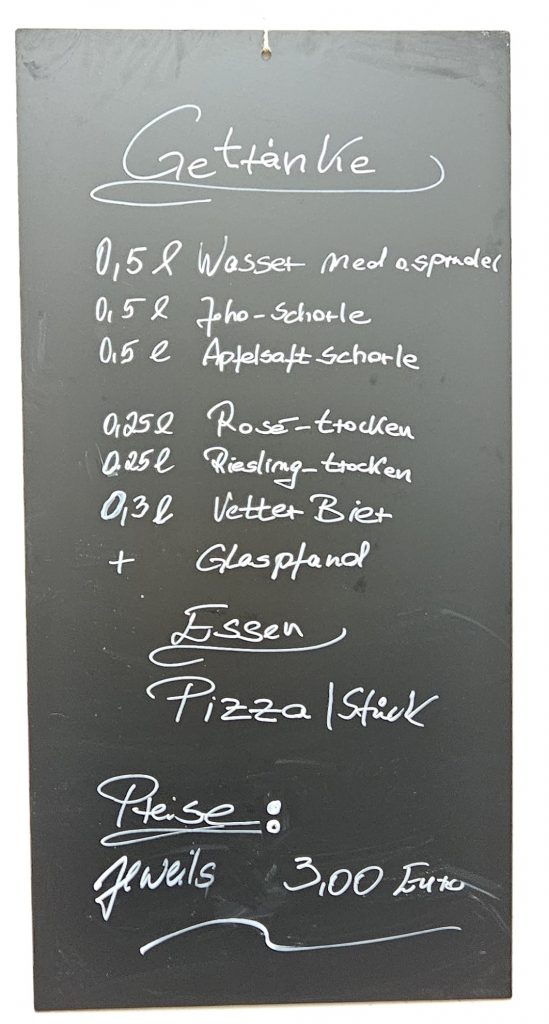 Getränke
0,5 l Wasser med o sprudel
0,5 l Joho-Schorle
0,5 l Apfelsaftschorle
0,25 l Rosé-trocken
0.25 l Riesling-trocken
0,3 l Vetter Bier
+ Glaspfand
Essen
Pizza/Stück
Preise:
Jeweils 3,00 Euro